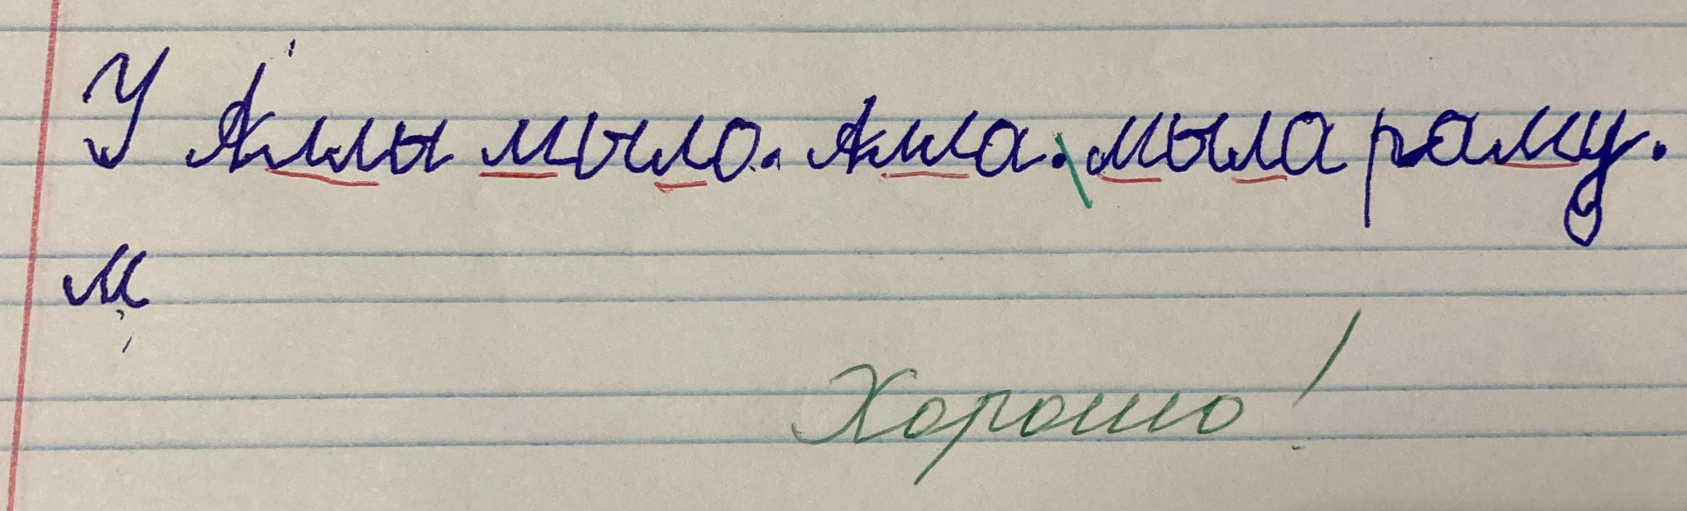 У Аллы мыло. Алла. мыла раму.
м
Хорошо!